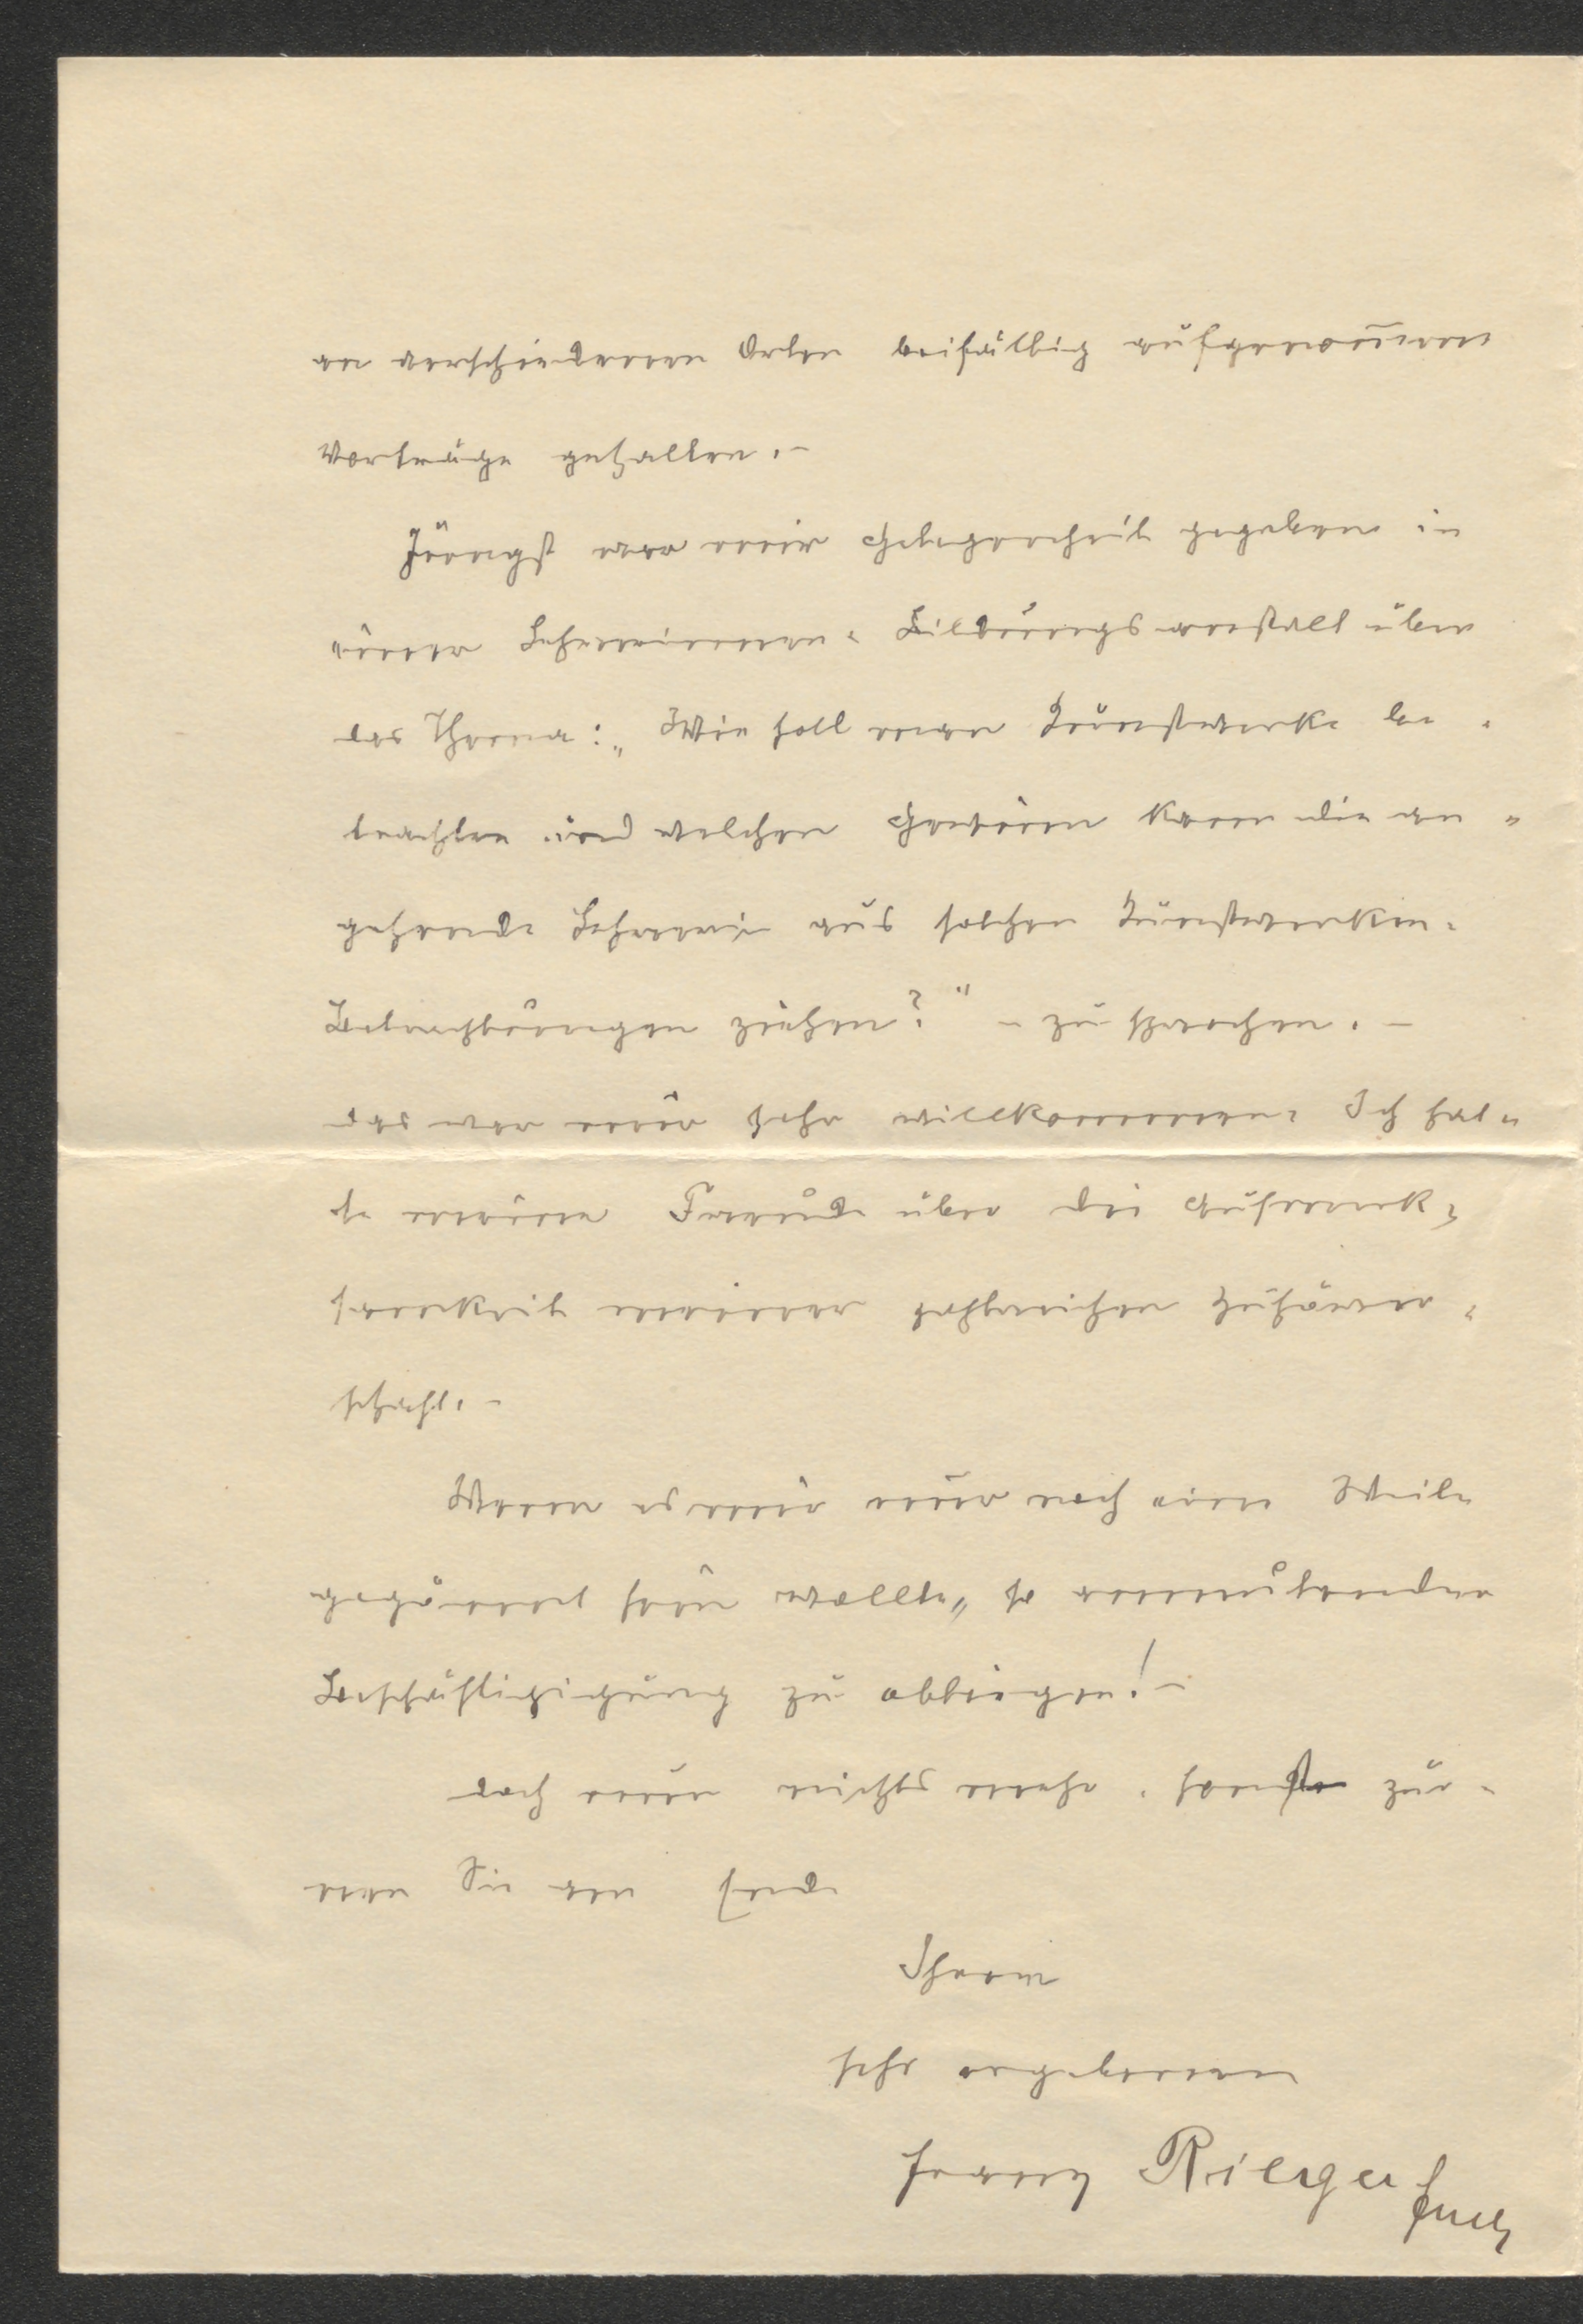 an verschiedenen Orten beifällig aufgenom̄ene
Vorträge gehalten. –
Jüngst war mir Gelegenheit gegeben in
einer Lehrerinnen- Bildungsanstalt über
das Thema: „Wie soll man Kunstwerke be-
trachten und welchen Gewinn kann die an-
gehende Lehrerin aus solchen Kunstwerken-
Betrachtungen ziehen?“ – zu sprechen. –
das war mir sehr willkommen. Ich hat-
te meine Freude über die Aufmerk-
samkeit meiner zahlreichen Zuhörer-
schaft. –
Wenn es mir nur noch eine Weile
gegönnt sein wollte, so anmutender
Beschäftigigung zu obliegen! –
doch nun nichts mehr. sonst zür-
nen Sie am Ende
Ihrem
sehr ergebenen
Franz Rieger